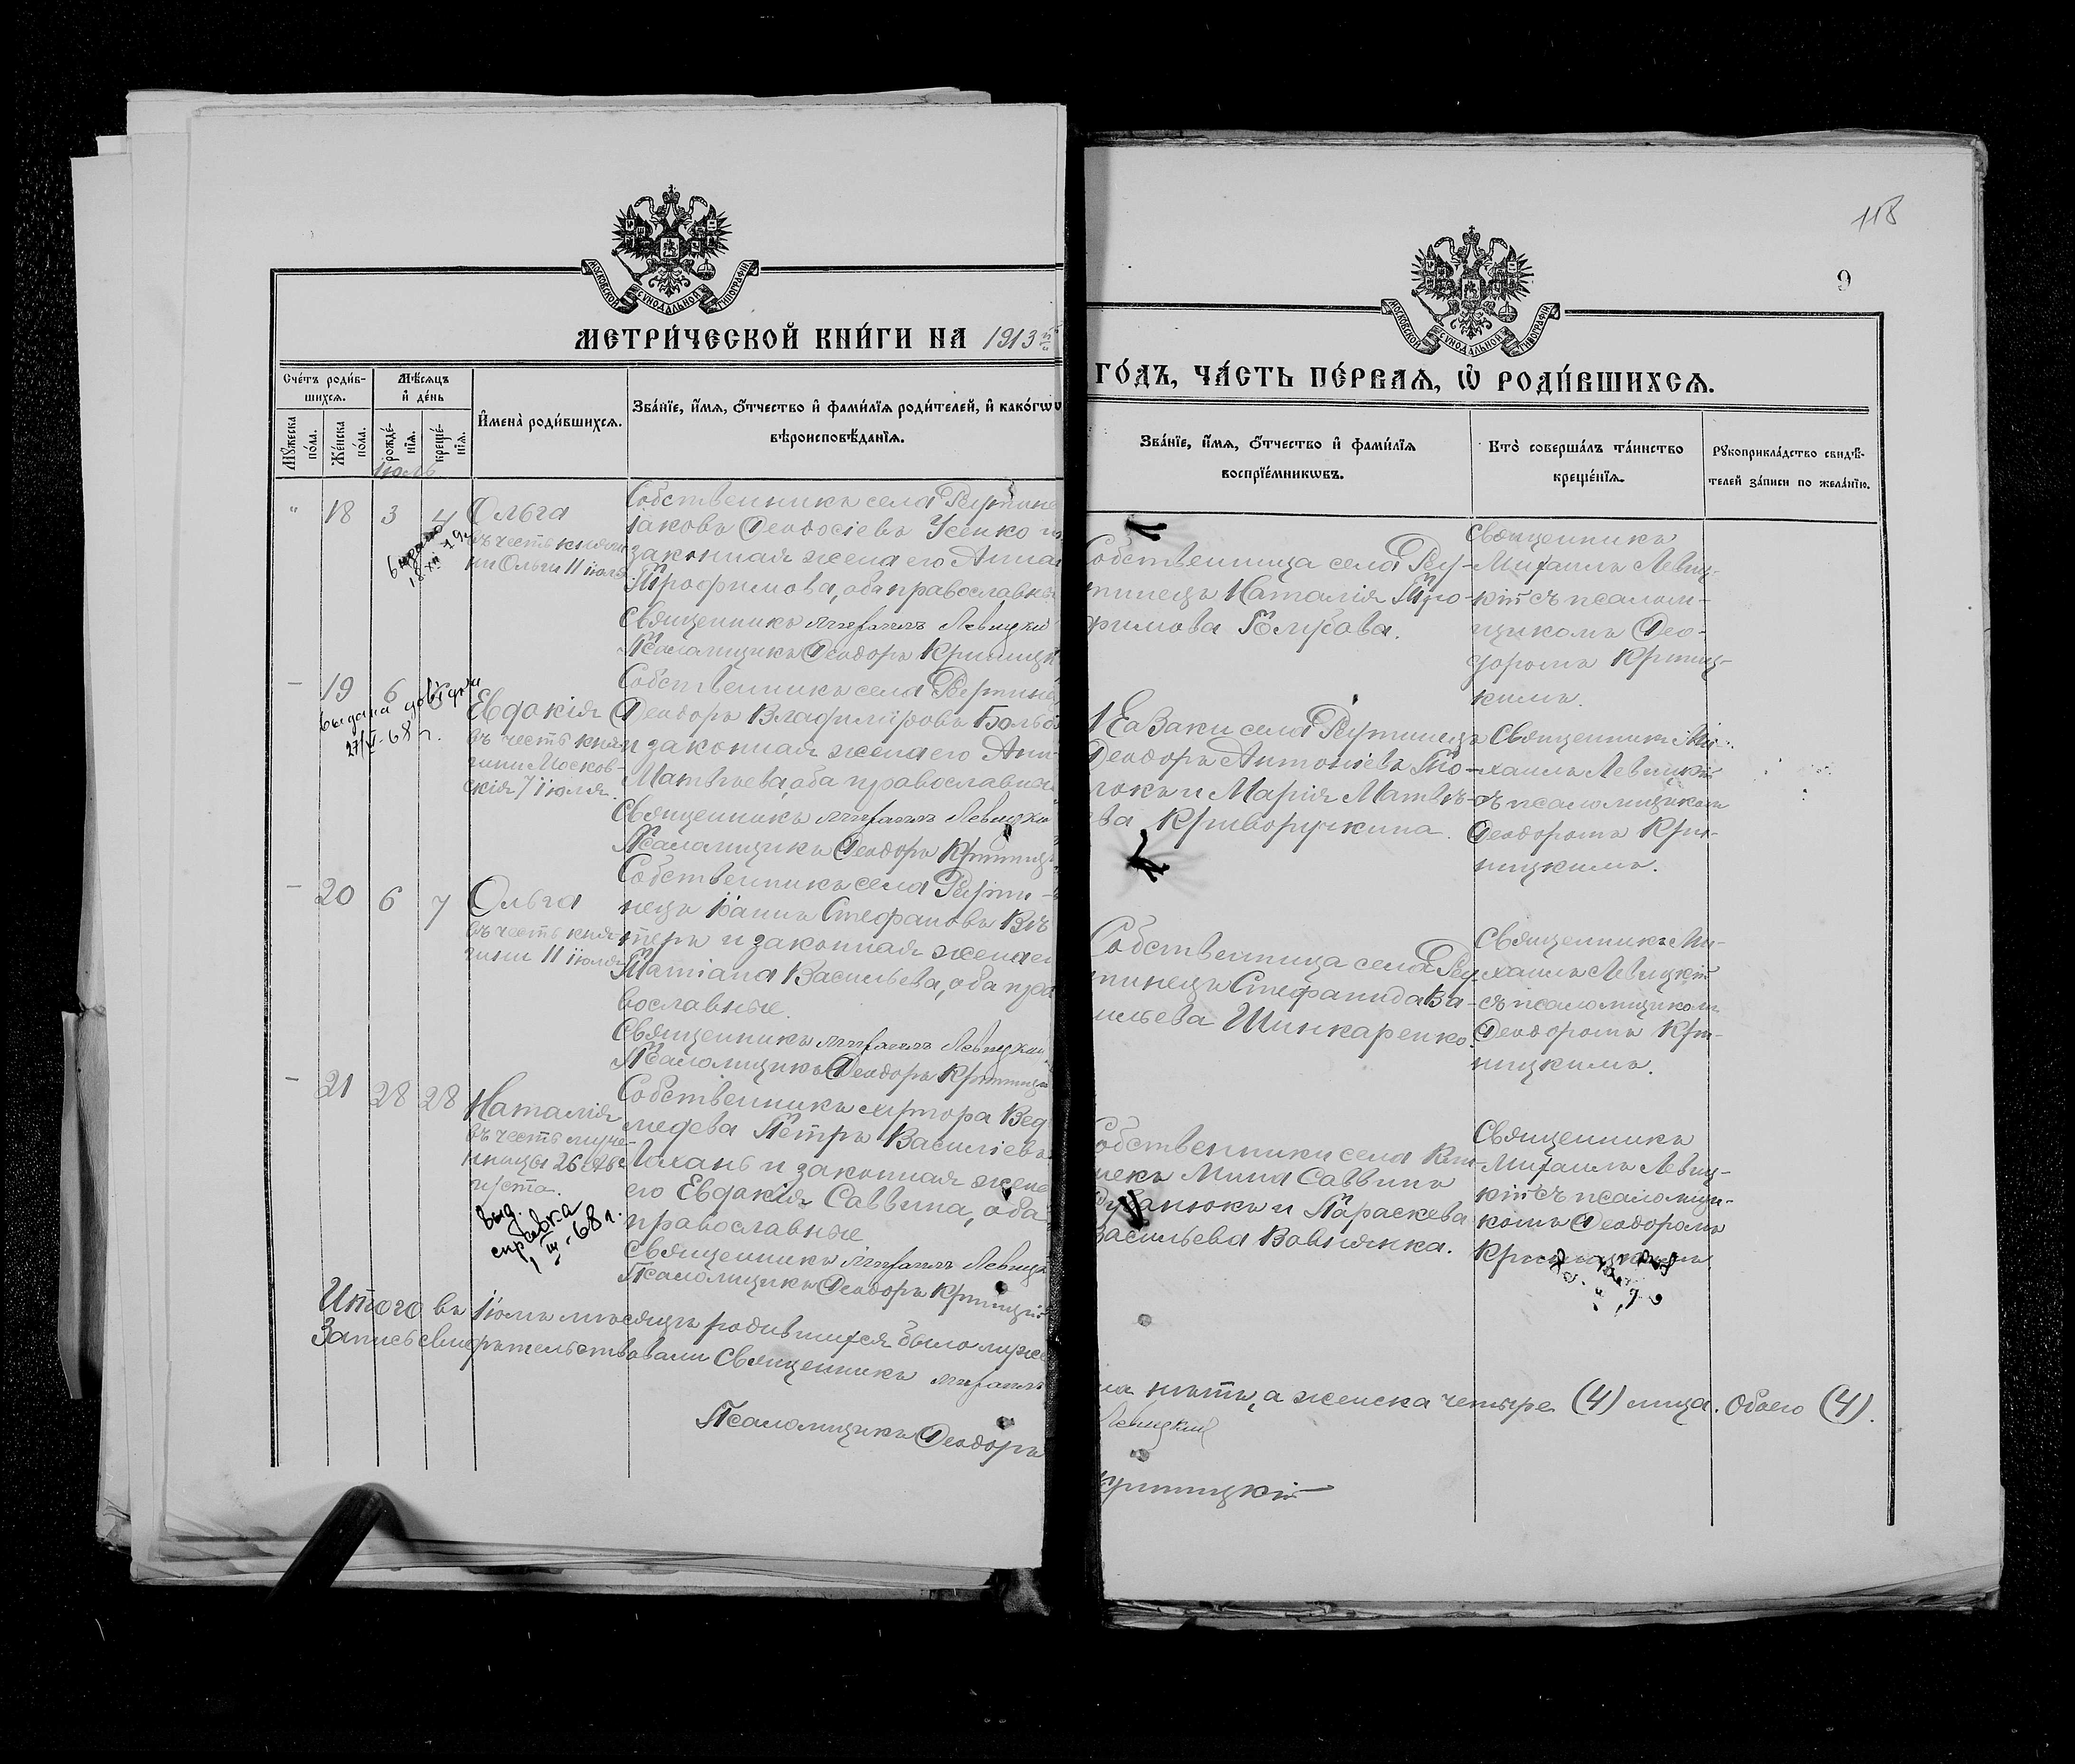 118
9
МОСКОВСКОЙ СѴНОДАЛЬНОЙ ТИПОГРАФІИ
МОСКОВСКОЙ СѴНОДАЛЬНОЙ ТИПОГРАФІИ
МЕТРИ́ЧЕСКОЙ КНИ́ГИ НА 1913й
ГО́ДЪ, ЧА́СТЬ ПЕ́РВАѦ, Ѡ҆ РОДИ́ВШИХСѦ.
Сче́тъ роди́в-
шихсѧ.
Мѣ́сѧцъ
и҆ де́нь
Мꙋ́жеска
по́ла.
Же́нска
по́ла.
рожде́-
нїѧ.
креще́-
нїѧ.
И҆мена̀ роди́вшихсѧ.
Зва́нїе, и҆́мѧ, ѻ҆́тчество и҆ фами́лїѧ роди́телей, и҆ како́гѡ
вѣроисповѣ́данїѧ.
Зва́нїе, и҆́мѧ, ѻ҆́тчество и҆ фами́лїѧ
воспрїе́мникѡвъ.
Кто̀ соверша́лъ та́инство
креще́нїѧ.
Рꙋкоприкла́дство свидѣ́-
телей за́писи по жела́нїю.
Іюль
" 18 3 4 Ольга
въ честь княги
ни Ольги 11 іюля
Собственникъ села
Іаковъ Ѳеодосіевъ Усенко и
законная жена его Анна
Трофимова, оба православны
Священникъ Михаилъ Левицкій
Псаломщикъ Ѳеодоръ Криницк
Собственница села Реу-
тинецъ Наталія Тро-
фимова Бѣлусова.
Священникъ
Михаилъ Левиц-
кій съ псалом-
щикомъ Ѳео-
доромъ Криниц-
кимъ.
– 19 6
выдана довідка
27/V-68 г.
Евдокія
въ честь княг
гини Москов-
скія 7 іюля.
Собственникъ села
Ѳеодоръ Владиміровъ
и законная жена его Анн
Матвѣева, оба православны
Священникъ Михаилъ Левицкій
Псаломщикъ Ѳеодоръ Криницк
села Реутинецъ
Ѳеодоръ Антоніевъ
и Марія Матвѣ-
ева Криворучкина.
Священникъ Ми-
хаилъ Левицкій
съ псаломщикомъ
Ѳеодоромъ Кри-
ницкимъ.
– 20 6 7 Ольга
въ честь кня-
гини 11 іюля
Собственникъ села Реути-
нецъ Іоаннъ Стефановъ Вѣ
теръ и законная жена ег
Татіана Васильева, оба пра
вославные.
Священникъ Михаилъ Левицкій
Псаломщикъ Ѳеодоръ Криницк
Собственница села Реу-
тинецъ Стефанида Ва-
сильева Шинкаренко.
Священникъ Ми-
хаилъ Левицкій
съ псаломщикомъ
Ѳеодоромъ Кри-
ницкимъ.
– 21 28 28 Наталія
въ честь муче-
ницы 26 Ав-
густа.
Выд.
справка
1 III-68 г.
Собственникъ хутора Вед
медева Петръ Василіевъ
и законная жена
его Евдокія Саввина, оба
православные
Священникъ Михаилъ Левицк
Псаломщикъ Ѳеодоръ Криницкій
Собственники села
Мина Саввинъ
и Параскева
Васильева
Священникъ
Михаилъ Левиц-
кій съ псаломщи-
комъ Ѳеодоромъ
Криницкимъ
Итого въ Іюлѣ мѣсяцѣ родившихся было муже
ска нѣтъ, а женска четыре (4) лица. Обоего (4).
Запись свидѣтельствовали Священникъ Михаилъ
Левицкій
Псаломщикъ Ѳеодоръ
Криницкій